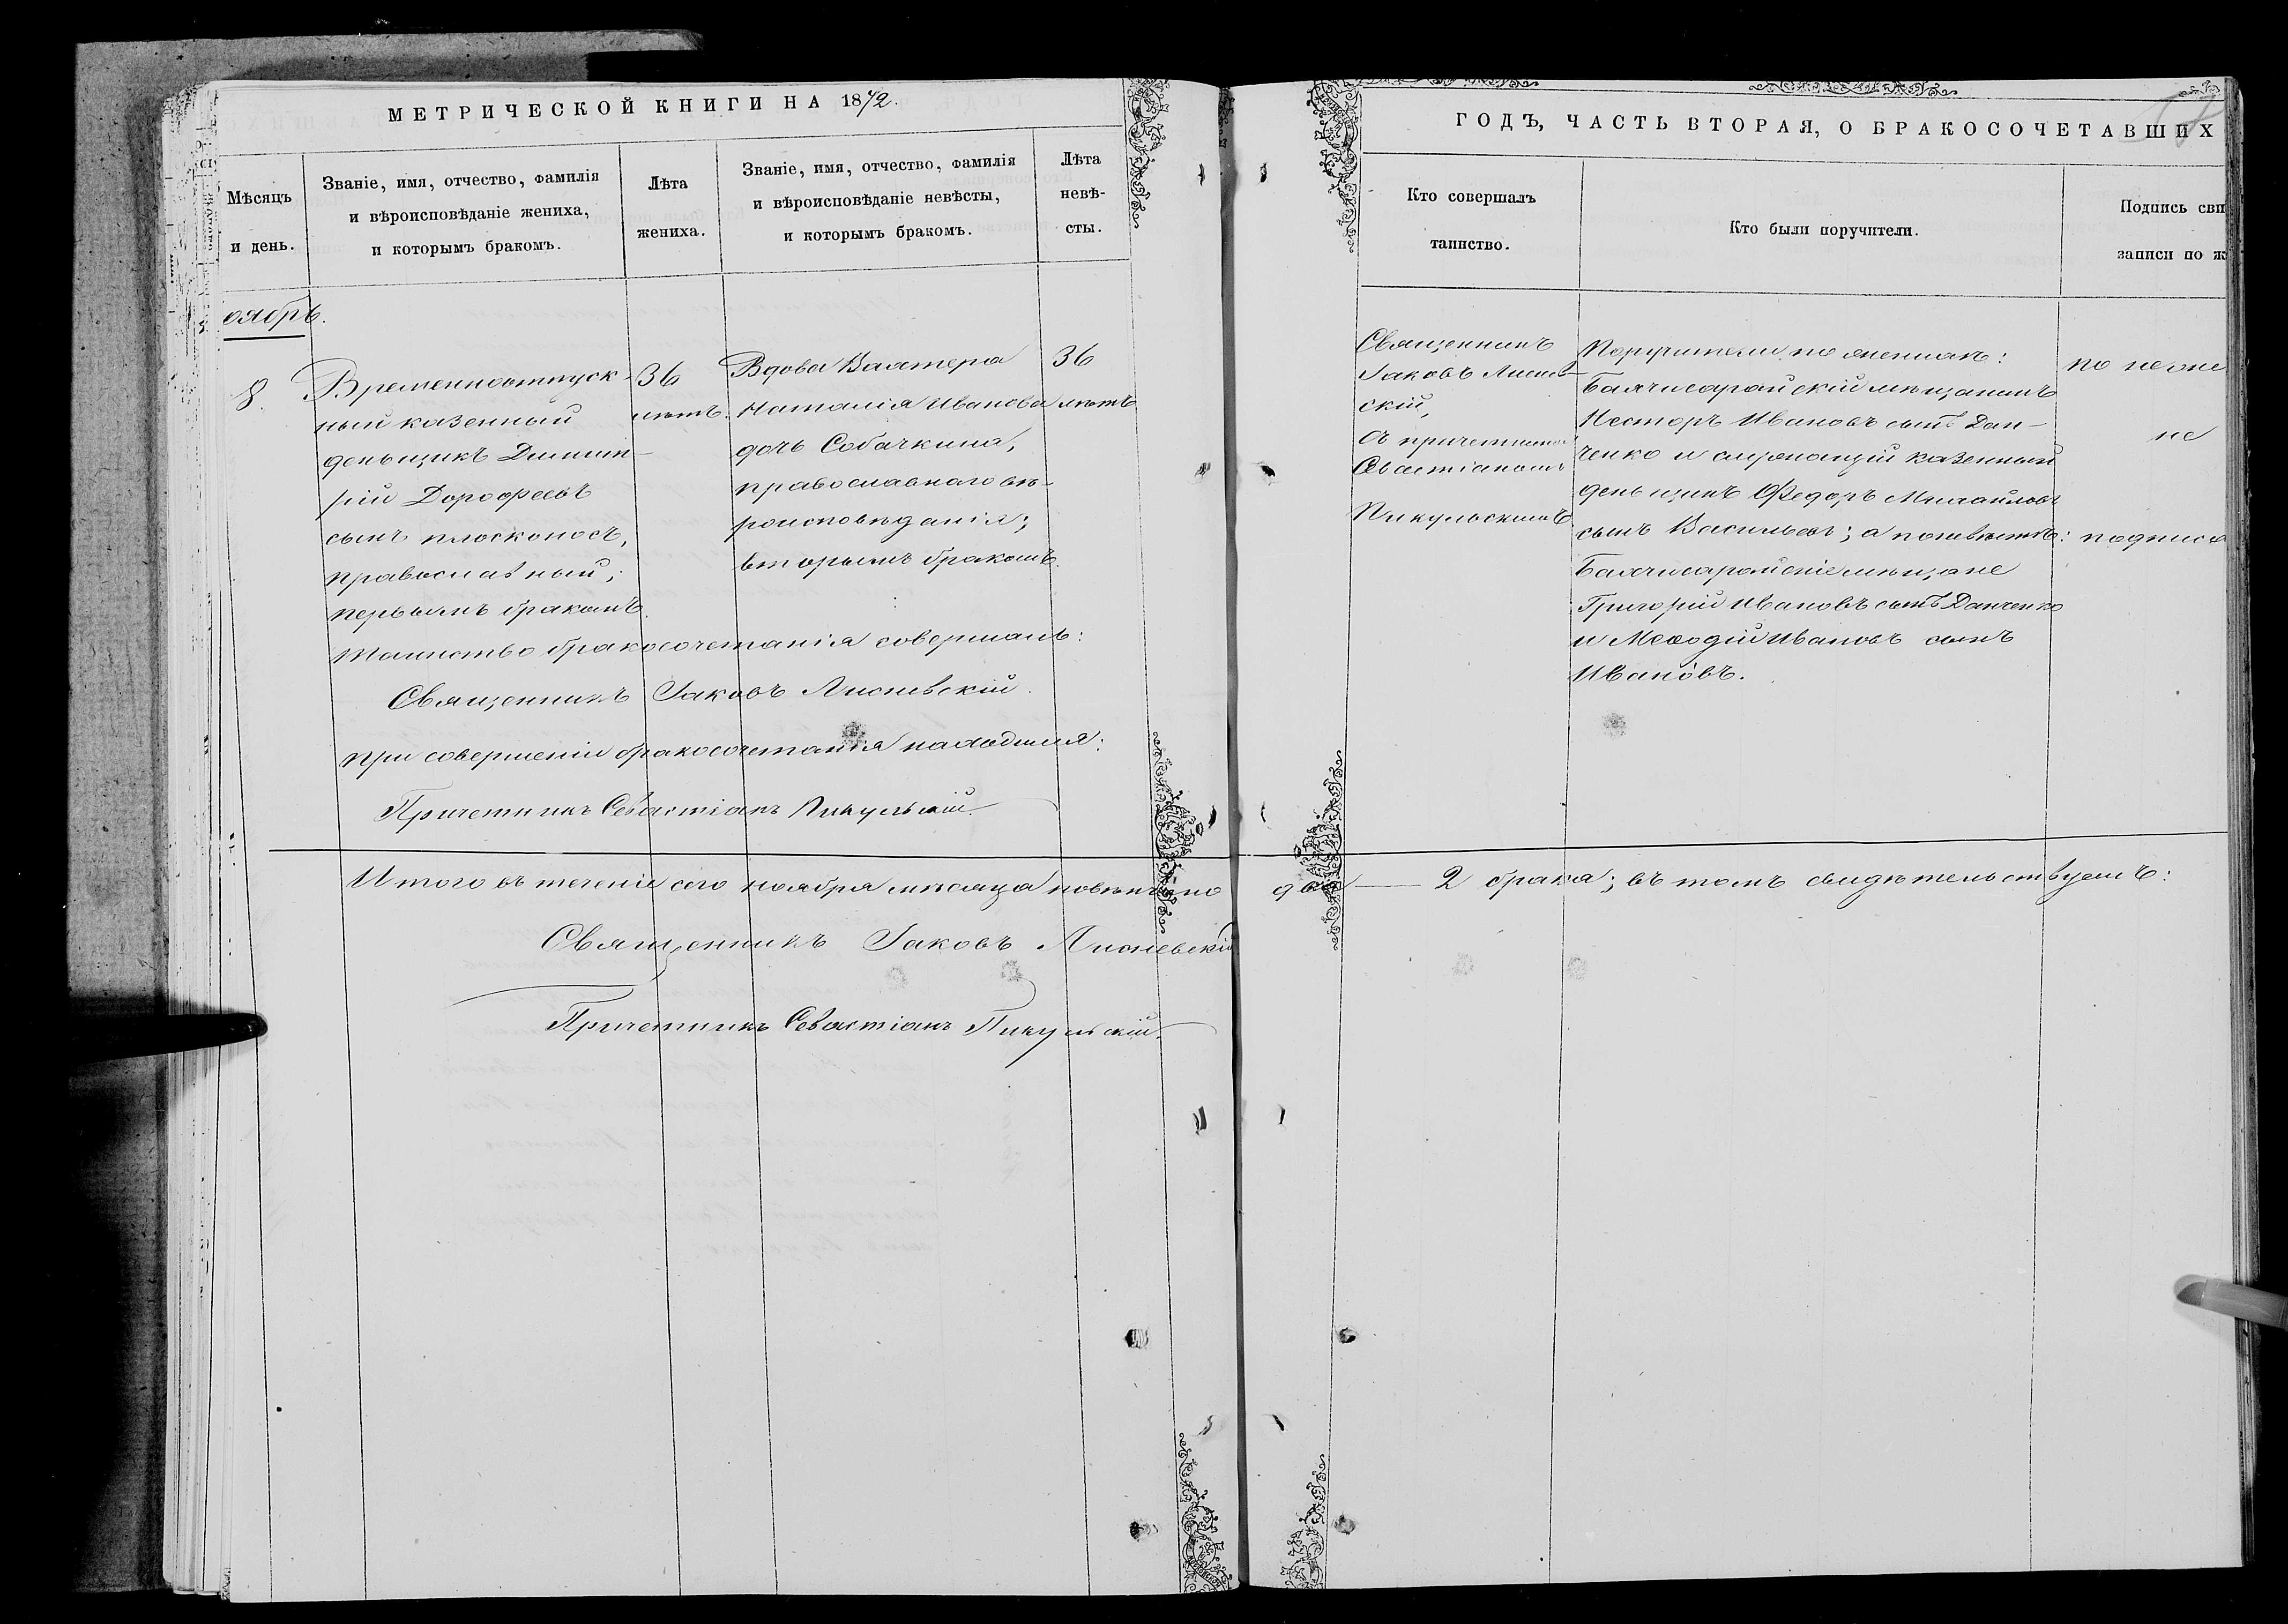 МЕТРИЧЕСКОЙ КНИГИ НА 1872.
Мѣсяцъ
и день.
Званіе, имя, отчество, фамилія
и вѣроисповѣданіе жениха,
и которымъ бракомъ.
Лѣта
жениха.
Званіе, имя, отчество, фамилія
и вѣроисповѣданіе невѣсты,
и которымъ бракомъ.
Лѣта
невѣ-
сты.
оябрь.
8.
Временноотпуск-
ный казенный
деньщикъ Димит-
рій Дорофеевъ
сынъ Плосконосъ,
православный;
первымъ бракомъ.
36
лѣтъ.
Вдова
Наталія Иванова
дочь Собачкина,
православнаго вѣ-
роисповѣданія;
вторымъ бракомъ.
36
лѣтъ
Таинство бракосочетанія совершалъ:
Священникъ Іаковъ Лисневскій.
При совершеніи бракосочетанія находился:
Причетникъ Севастіанъ Пикульскій.
Итого въ теченіе сего ноября мѣсяца повѣнчано
Священникъ Іаковъ Лисневскій
Причетникъ Севастіанъ Пикульскій.
ГОДЪ, ЧАСТЬ ВТОРАЯ, О БРАКОСОЧЕТАВШИХ
Кто совершалъ
таинство.
Кто были поручители.
Подпись сви
записи по ж
Священникъ
Іаковъ Лиснев-
скій,
съ причетникомъ
Севастіаномъ
Пикульскимъ.
Поручители по женихѣ:
Бахчисарайскій мѣщанинъ
Несторъ Ивановъ сынъ Дан-
ченко и служащій казенный
деньщикъ Федоръ Михайловъ
сынъ Васильевъ; а по невѣстѣ:
Бахчисарайскіе мѣщане
Григорій Ивановъ сынъ Данченко
и Меѳодій Ивановъ сынъ
Ивановъ.
не
подписа
два — 2 брака; въ томъ свидѣтельствуемъ: